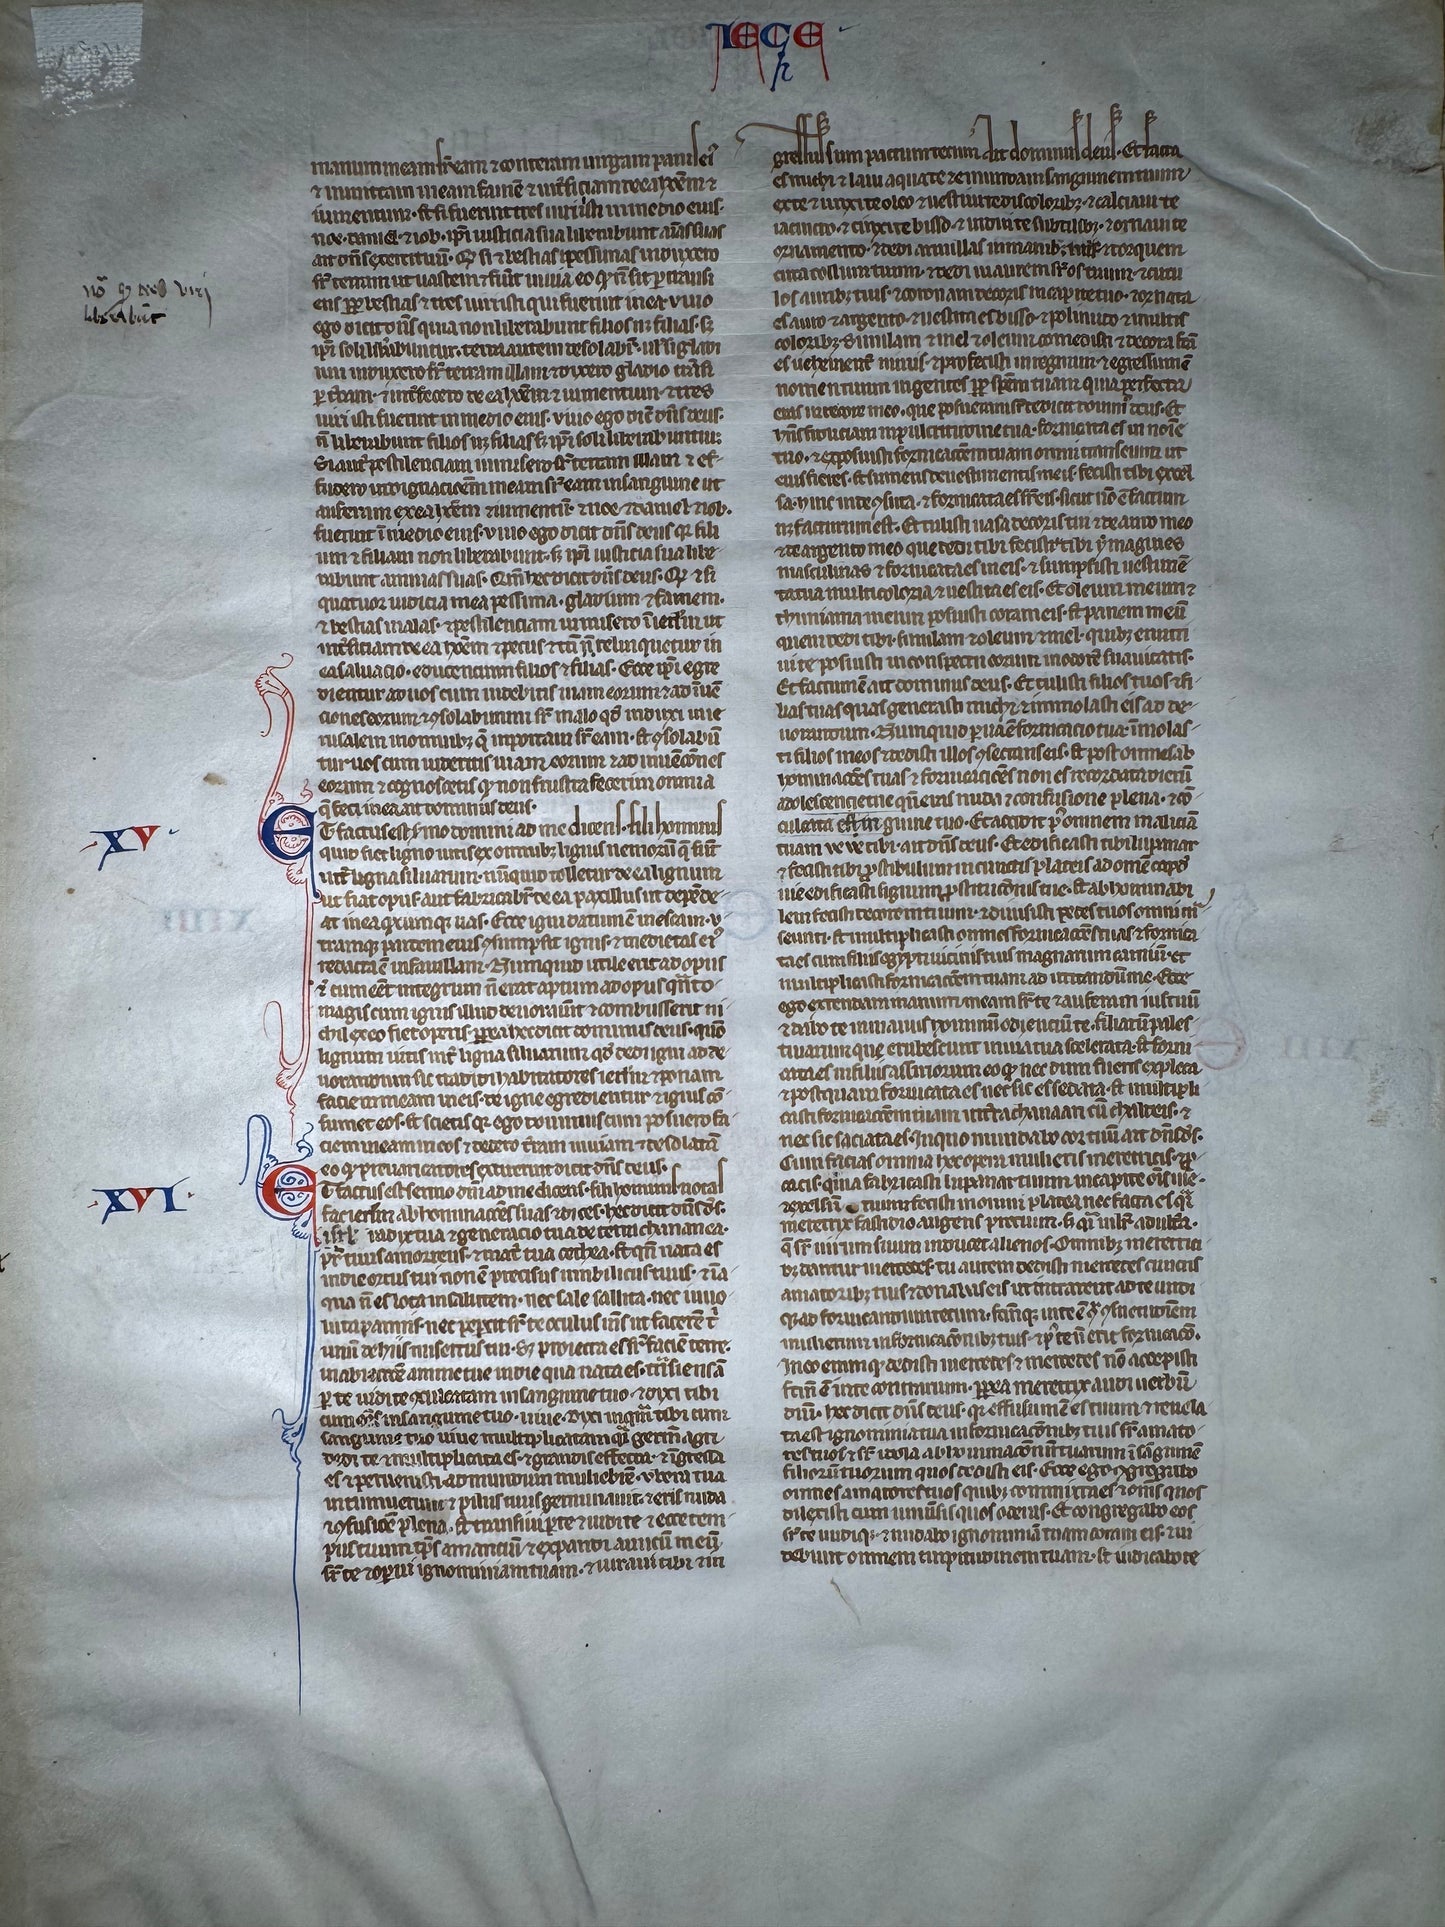 IECҺE
manum meam sr̄ eam ⁊ conteram uirgam panis eiꝰ
⁊ inmittam in eam famē ⁊ int̄ficiam de ea hoīem ⁊
iumentum· Et si fuerint tres uiri isti in medio eius·
noe· daniel ⁊ iob· ip̄i iusticia sua liberabunt aīas suas
ait dn̄s exercituū· Qđ si ⁊ bestias pessimas induxero
sr̄ terram ut uastem ⁊ fiūt inuia eo qđ n̄ sit ꝑtransi
ens ꝓpr̄ bestias ⁊ tres uiri isti qui fuerint in ea· viuo
ego dicit dn̄s quia non liberabunt filios nꝫ filias· sꝫ
ip̄i soli lib̄abuntur· terra autem desolabit̄· ul̄ si gladi
um induxero sr̄ terram illam ⁊ dixero gladio trāsi
ꝑ t̄ram· ⁊ int̄fecero de ea hoīem ⁊ iumentum· ⁊ tres
uiri isti fuerint in medio eius· viuo ego dicit dn̄s deus·
n̄ liberabunt filios nꝫ filias sꝫ ip̄i soli liberabuntur
Si aut̄ pestilenciam inmisero sr̄ terram illam ⁊ ef
fudero indignacōem meam sr̄ eam in sanguine ut
auferam ex ea hoīem ⁊ iumentū· ⁊ noe ⁊ daniel ⁊ iob·
fuerint ī medio eius· viuo ego dicit dn̄s deus qꝛ fili
um ⁊ filiam non liberabunt· sꝫ ip̄i iusticia sua libe
rabunt animas suas· Qm̄ hec dicit dn̄s deus· Qđ ⁊ si
quatuor iudicia mea pessima· gladium ⁊ famem·
⁊ bestias malas· ⁊ pestilenciam inmisero ī ierl̄m ut
int̄ficiam de ea hoīem ⁊ pecus ⁊ tn̄ relinquetur in
ea saluacio· educencium filios ⁊ filias· Ecce ip̄i egre
dientur ad uos cum uidebitis uiam eorum ⁊ adīuē
ciones eorum ⁊ ꝯsolabimini sr̄ malo qđ induxi in ie
rusalem in omnibꝫ q̄ inportaui sr̄ eam· Et ꝯsolabūt
tur uos cum uideritis uiam eorum ⁊ adinuēcōnes
eorum ⁊ cognoscetis qđ non frustra fecerim omnia
q̄ feci in ea ait dominus deus·
XV
Et factus est sermo domini ad me dicens· fili hominis
quid fiet ligno uitis ex omnibꝫ lignis nemorū q̄ sūt
int̄ ligna siluarum· nūnquid tolletur de ea lignum
ut fiat opus aut fabricabit̄ de ea paxillus ut depende
at in ea quodcumqꝫ uas· Ecce igni datum ē in escam· v
tramqꝫ partem eius ꝯsumpsit ignis· ⁊ medietas eiꝰ
redacta ē in fauillam· Numquid utile erit ad opus
⁊ cum eēt integrum n̄ erat aptum ad opus quāto
magis cum ignis illud deuorauit ⁊ combusserit ni
chil ex eo fiet operis· ꝓpr̄ea hec dicit dominus deus· quōo
lignum uitis int̄ ligna siluarum qđ dedi igni ad de
uorandum sic tradidi habitatores ierl̄m ⁊ ponam
faciem meam in eis· de igne egredientur ⁊ ignis cō
sumet eos· Et scietis qꝛ ego dominus cum posuero fa
ciem meam in eos ⁊ dedero t̄ram inuiam ⁊ desolatā
eo qđ preuaricatores extiterint dicit dn̄s deus·
XVI
Et factus est sermo dn̄i ad me dicens· fili hominis notas
fac ierl̄m abhominacōes suas ⁊ dices· hec dicit dn̄s ds̄·
radix tua ⁊ generacio tua de terra chananea·
pr̄ tuus amorreus· ⁊ mat̄ tua cethea· Et qn̄ nata es
in die ortus tui non ē precisus umbilicus tuus· ⁊ ī a
qua n̄ es lota in salutem· nec sale sallita· nec inuo
luta pannis· nec pepercit sr̄ te oculus īns ut faceret t̄
unū de hiis misertus tui· Sꝫ proiecta es sr̄ faciē terre·
in abiectōe anime tue in die qua nata es· trāsiens ā
ꝑ te uidi te ꝯculcatam in sanguine tuo ⁊ dixi tibi
cum eēs in sanguine tuo· uiue· Dixi inqm̄ tibi cum
sanguine tuo uiue multiplicatam qīi germē agri
dedi te ⁊ multiplicata es· ⁊ grandis effecta· ⁊ īgressa
es ⁊ peruenisti ad mundum muliebrē· vbera tua
intumuerunt ⁊ pilus tuus germinauit· ⁊ eras nuda
⁊ ꝯfusiōe plena· Et transiui ꝑ te ⁊ uidi te ⁊ ecce tem
pus tuum tp̄s amanciū· ⁊ expandi amictū meū
sr̄ te ⁊ oꝑui ignominiam tuam· ⁊ iuraui tibi ⁊ in
gressus sum pactum tecum Ait dominus deus· Et facta
es michi ⁊ laui aqua te ⁊ emundaui sanguinem tuum
ex te ⁊ unxi te oleo ⁊ uestiui te discoloribꝫ ⁊ calciaui te
iacincto· ⁊ cinxi te bisso· ⁊ indui te subtilibꝫ· ⁊ ornaui te
ornamento· ⁊ dedi armillas in manibꝫ tuis ⁊ torquem
circa collum tuum· ⁊ dedi inaurem sr̄ os tuum· ⁊ circu
los auribꝫ tuis· ⁊ coronam decoris in capite tuo· ⁊ ornata
es auro ⁊ argento· ⁊ uestita es bisso· ⁊ polimito ⁊ multis
coloribꝫ· Similam ⁊ mel ⁊ oleum comedisti ⁊ decora fcā
es uehement̄ nimis· ⁊ profecisti in regnum· ⁊ egressum ē
nomen tuum in gentes ꝓpr̄ spēm tuam quia perfecta
eras in decore meo· que posueram sr̄ te dicit domin̄ deus· Et
hn̄s fiduciam in pulcritudine tua· fornicata es in noīe
tuo· ⁊ exposuisti fornicacōem tuam omni transeunti ut
eius fieres· Et sumens de uestimentis meis· fecisti tibi excel
sa· hinc inde ꝯsuta· ⁊ fornicata es sr̄ eis· sicut nō ē factum
nꝫ futurum est· Et tulisti uasa decoris tui ⁊ de auro meo
⁊ de argento meo que dedi tibi fecisti tibi ymagines
masculinas ⁊ fornicata es in eis· ⁊ sumpsisti uestimē
ta tua multicoloria ⁊ uestita es eis· Et oleum meum ⁊
thimiama meum posuisti coram eis· Et panem meū
quem dedi tibi· similam ⁊ oleum ⁊ mel· quibꝫ enutri
ui te posuisti in conspectu eorum in odorē suauitatis·
Et factum ē ait dominus deus· Et tulisti filios tuos ⁊ fi
lias tuas quas generasti michi ⁊ immolasti eis ad de
uorandum· Numquid parua ē fornicacio tua· īmolas
ti filios meos ⁊ dedisti illos ꝯsecrans eis· Et post omnes ab
hominacōes tuas ⁊ fornicaciōes non es recordata dierū
adolescencie tue qn̄ eras nuda ⁊ confusione plena· ⁊ cō
culcata es in sanguine tuo· Et accidit pꝰ omnem maliciā
tuam ve ve tibi· ait dn̄s deus· Et edificasti tibi lupanar
⁊ fecisti tibi ꝓstibulum in cunctis plateis ad omē caput
uie edificasti signum ꝓstitucōnis tue· Et abhominabi
lem fecisti decorem tuum· ⁊ diuisisti pedes tuos omni trā
seunti· Et multiplicasti omnes fornicacōes tuas ⁊ fornica
ta es cum filiis egypti uicinis tuis magnarum carniū· Et
multiplicasti fornicacōem tuam ad irritandū me· Ecce
ego extendam manum meam sr̄ te ⁊ auferam ius tuū
⁊ dabo te in manus hominū odienciū te· filiarū pales
tinarum que erubescunt in uia tua scelerata· Et forni
cata es in filiis assiriorum eo qđ nec dum fueris expleta
⁊ postquam fornicata es nec sic es sedata· Et multipli
casti fornicacōem tuam int̄ra chanaan cū chaldeis· ⁊
nec sic saciata es· In quo mundabo cor tuū ait dn̄s ds̄·
Cum facias omnia hec opera mulieris meretricis ⁊ ꝓ
cacis· quia fabricasti lupanar tuum in capite oīs uie·
⁊ excelsū tuum fecisti in omni platea nec facta es qīi
meretrix fastidio augens precium· sꝫ qīi mulr̄ adultˉa·
q̄ sr̄ uirum suum inducet alienos· Omnibꝫ meretrici
bꝫ dantur mercedes· tu autem dedisti mercedes cunctis
amatoribꝫ tuis ⁊ donauisti eis ut intrarent ad te undi
qꝫ ad fornicandum tecum· fcm̄qꝫ in te ē ꝯͣ ꝯsuetudinem
mulierum in fornicacōnibꝫ tuis· ⁊ pꝰ te n̄ erit fornicacō·
In eo enim qđ dedisti mercedes ⁊ mercedes nō accepisti
fcm̄ ē in te contrarium· ꝓpr̄ea meretrix audi uerbū
dn̄i· hec dicit dn̄s deus· qꝛ effusum ē es tuum ⁊ reuela
ta est ignominia tua in fornicacōnibꝫ tuis sr̄ amato
res tuos ⁊ sr̄ idola abhominaconū tuarum ī sāguine
filiorū tuorum quos dedisti eis· Ecce ego ꝯgregabo
omnes amatores tuos quibꝫ commixta es ⁊ oms̄ quos
dilexisti cum uniuersis quos oderas· Et congregabo eos
sr̄ te undiqꝫ· ⁊ nudabo ignominiā tuam coram eis· ⁊ ui
debunt omnem turpitudinem tuam· Et iudicabo te
nō qđ tres viri
liberabūt